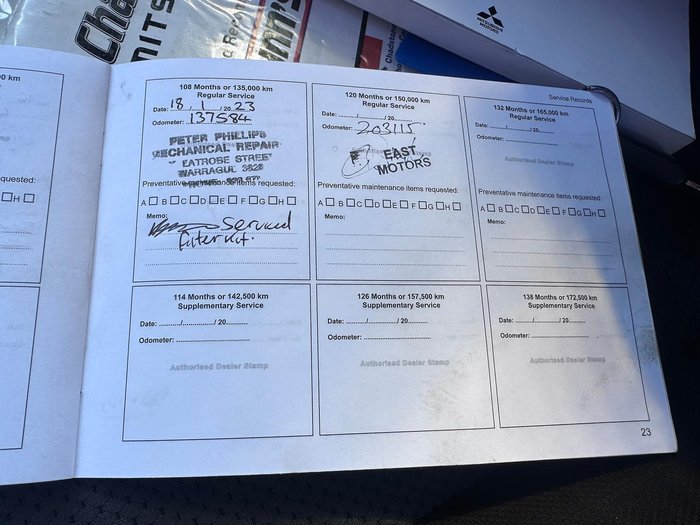 MITSUBISHI
MOTORS
Service Records
108 Months or 135,000 km
Regular Service
Date: 18 / 1 / 20 23
Odometer: 137584
PETER PHILLIPS
MECHANICAL REPAIR
LATROBE STREET
WARRAGUL 3820
Preventative maintenance items requested:
A B C D E F G H
Memo:
Serviced
filter kit.
120 Months or 150,000 km
Regular Service
Date: ......./......./ 20.......
Odometer: 203115
EAST
MOTORS
Preventative maintenance items requested:
A B C D E F G H
Memo:
132 Months or 165,000 km
Regular Service
Date: ......./......./ 20.......
Odometer:
Authorised Dealer Stamp
Preventative maintenance items requested:
A B C D E F G H
Memo:
114 Months or 142,500 km
Supplementary Service
Date: ......./......./ 20.......
Odometer:
Authorised Dealer Stamp
126 Months or 157,500 km
Supplementary Service
Date: ......./......./ 20.......
Odometer:
Authorised Dealer Stamp
138 Months or 172,500 km
Supplementary Service
Date: ......./......./ 20.......
Odometer:
Authorised Dealer Stamp
23